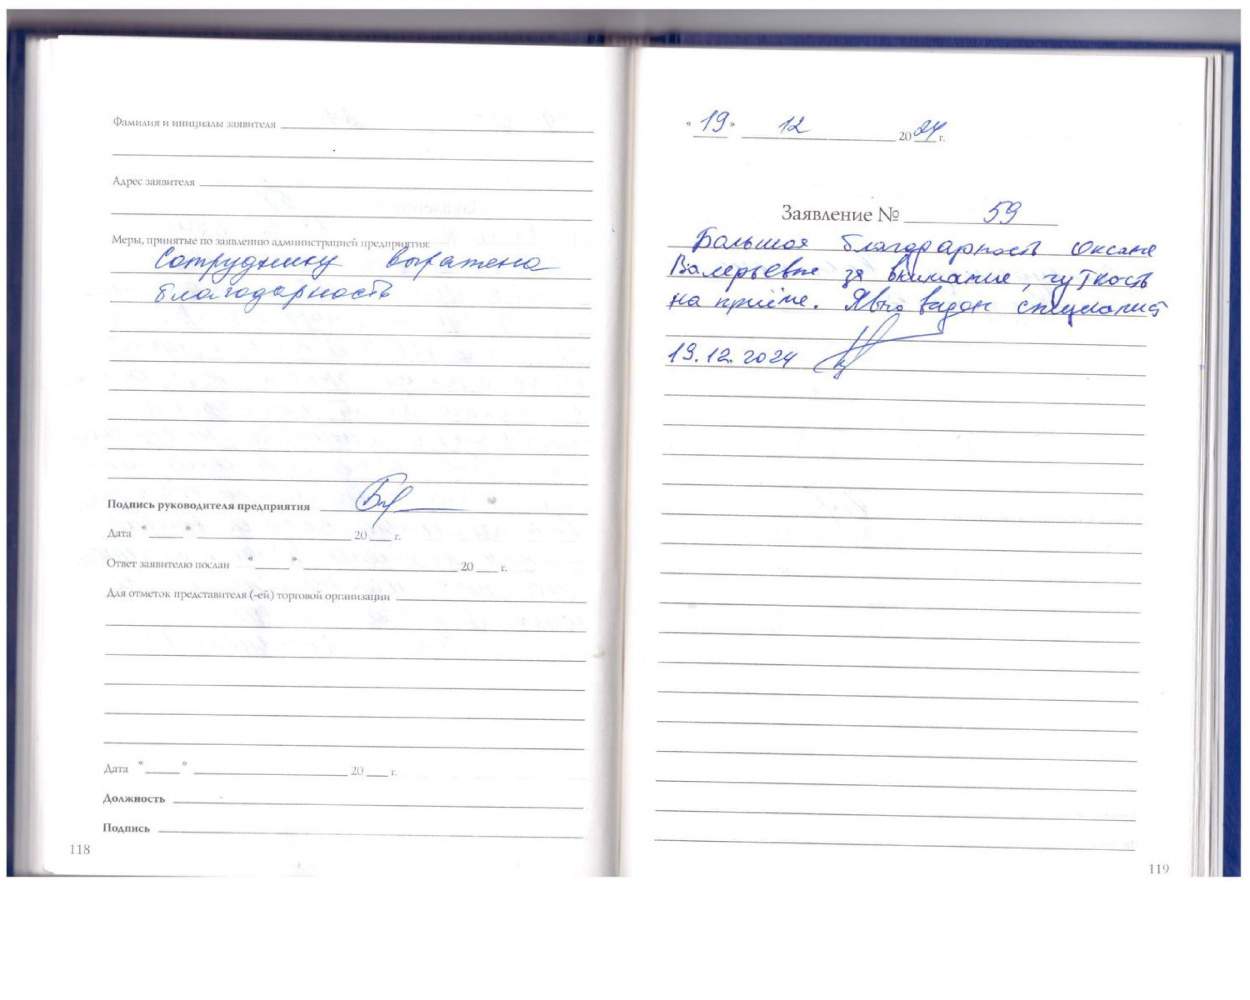 Фамилия и инициалы заявителя
Адрес заявителя
Меры, принятые по заявлению администрацией предприятия:
Сотруднику выражена
благодарность
Подпись руководителя предприятия
Дата " " 20 г.
Ответ заявителю послан " " 20 г.
Для отметок представителя (-ей) торговой организации
Дата " " 20 г.
Должность
Подпись
118
" 19 " 12 2024 г.
Заявление № 59
Большая благодарность Оксане
Валерьевне за внимание, чуткость
на приёме. Явно виден специалист
19.12.2024
119